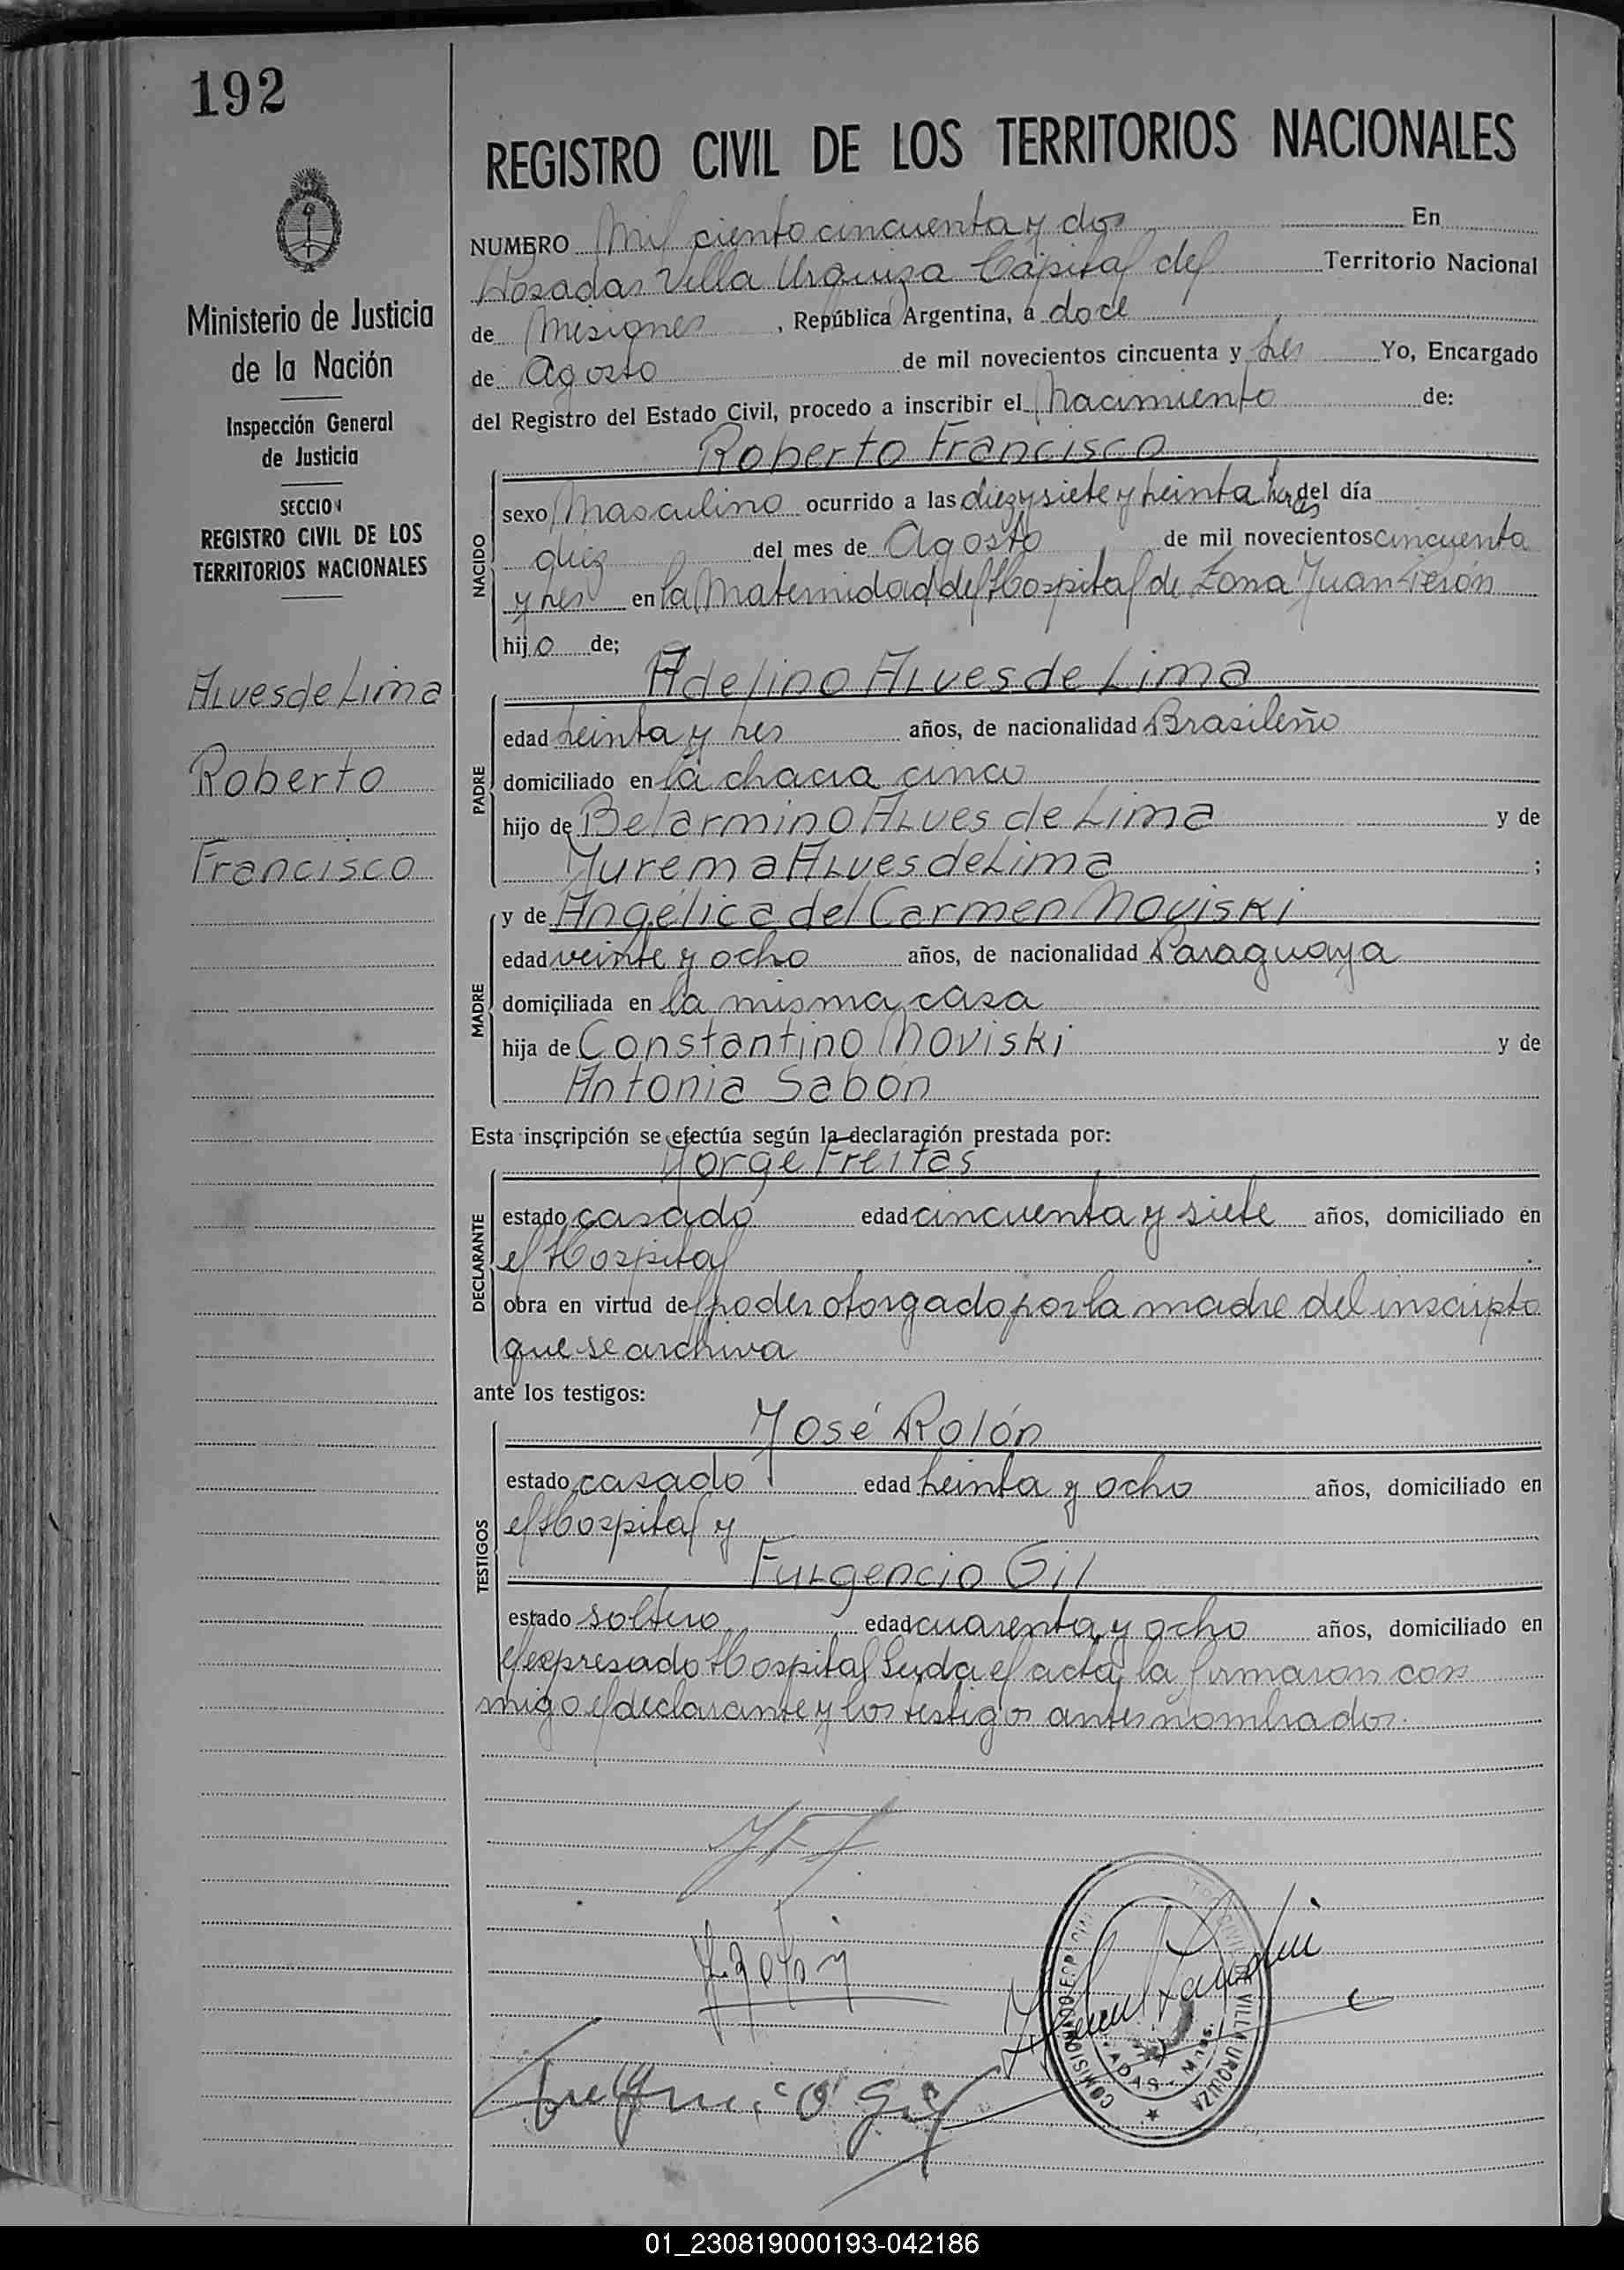 192
REGISTRO CIVIL DE LOS TERRITORIOS NACIONALES
NUMERO Mil ciento cincuenta y dos En
Posadas Villa Urquiza Capital del Territorio Nacional
de Misiones, República Argentina, a doce
de Agosto de mil novecientos cincuenta y tres Yo, Encargado
del Registro del Estado Civil, procedo a inscribir el Nacimiento de:
Roberto Francisco
NACIDO
sexo Masculino ocurrido a las diez y siete y treinta horas del día
diez del mes de Agosto de mil novecientos cincuenta
y tres en la Maternidad del Hospital de Zona Juan Perón
hijo de;
Adelino Alves de Lima
PADRE
edad treinta y tres años, de nacionalidad Brasileño
domiciliado en la chacra cinco
hijo de Belarmino Alves de Lima y de
Yurema Alves de Lima ;
MADRE
y de Angélica del Carmen Noviski
edad veinte y ocho años, de nacionalidad Paraguaya
domiciliada en la misma casa
hija de Constantino Noviski y de
Antonia Sabón
Esta inscripción se efectúa según la declaración prestada por:
Jorge Freitas
DECLARANTE
estado casado edad cincuenta y siete años, domiciliado en
el Hospital .
obra en virtud del poder otorgado por la madre del inscripto
que se archiva
ante los testigos:
José Rolón
TESTIGOS
estado casado edad treinta y ocho años, domiciliado en
el Hospital y
Fulgencio Gil
estado soltero edad cuarenta y ocho años, domiciliado en
el expresado Hospital Leyda el acta la firmaron con
migo el declarante y los testigos antes nombrados.
Ministerio de Justicia
de la Nación
Inspección General
de Justicia
SECCION
REGISTRO CIVIL DE LOS
TERRITORIOS NACIONALES
Alves de Lima
Roberto
Francisco
VILLA URQUIZA
01_230819000193-042186